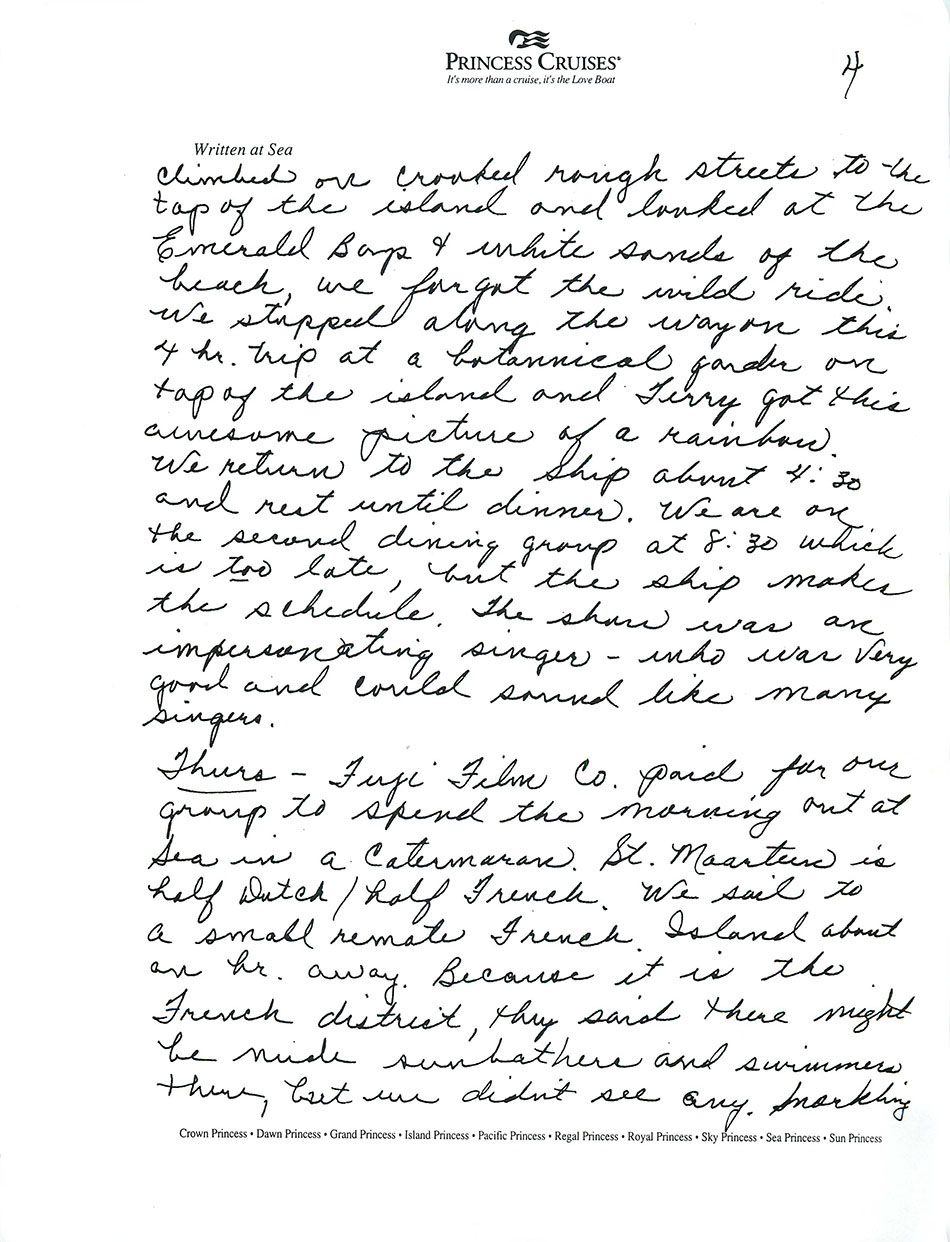 PRINCESS CRUISES®
It's more than a cruise, it's the Love Boat
4
Written at Sea
climbed on crooked rough streets to the
top of the island and looked at the
Emerald Bays & white sands of the
beach, we forgot the wild ride.
We stopped along the way on this
4 hr. trip at a botannical garden on
top of the island and Terry got this
awesome picture of a rainbow.
We return to the ship about 4:30
and rest until dinner. We are on
the second dining group at 8:30 which
is too late, but the ship makes
the schedule. The show was an
impersonating singer - who was Very
good and could sound like many
singers.
Thurs - Fuji Film Co. paid for our
group to spend the morning out at
Sea in a Catermaran. St. Maarteen is
half Dutch / half French. We sail to
a small remote French Island about
an hr. away. Because it is the
French district, they said there might
be nude sunbathers and swimmers
there, but we didn't see any. Snorkling
Crown Princess • Dawn Princess • Grand Princess • Island Princess • Pacific Princess • Regal Princess • Royal Princess • Sky Princess • Sea Princess • Sun Princess